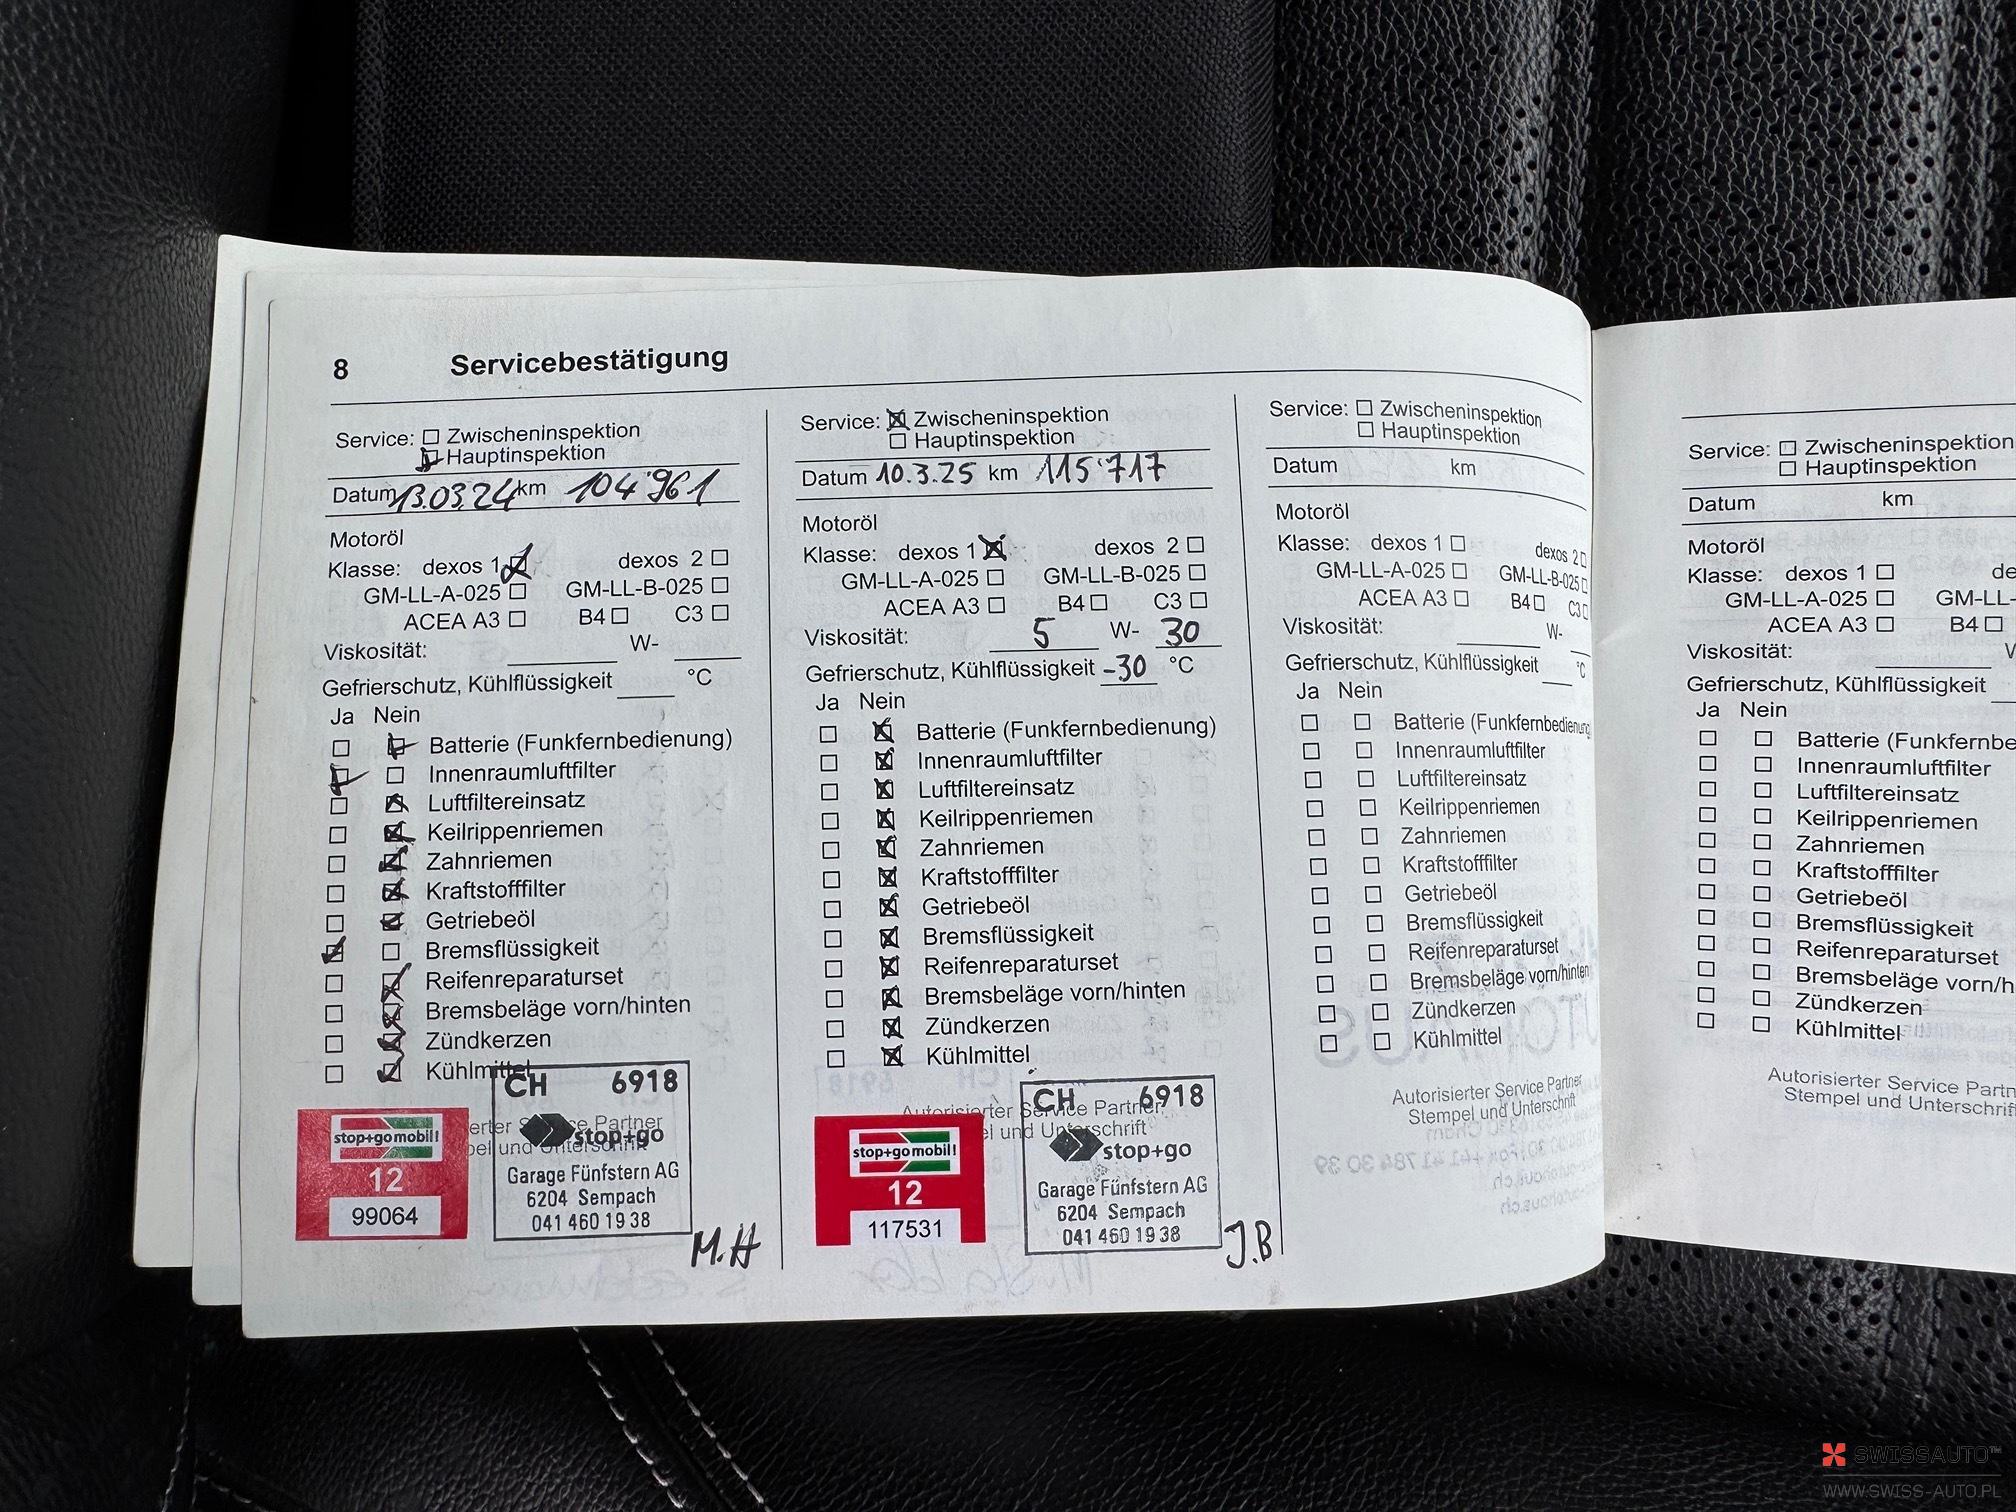 8 Servicebestätigung
Service: Zwischeninspektion
Hauptinspektion
Datum 13.03.24 km 104'961
Motoröl
Klasse: dexos 1 dexos 2
GM-LL-A-025 GM-LL-B-025
ACEA A3 B4 C3
Viskosität: W-
Gefrierschutz, Kühlflüssigkeit °C
Ja Nein
Batterie (Funkfernbedienung)
Innenraumluftfilter
Luftfiltereinsatz
Keilrippenriemen
Zahnriemen
Kraftstofffilter
Getriebeöl
Bremsflüssigkeit
Reifenreparaturset
Bremsbeläge vorn/hinten
Zündkerzen
Kühlmittel
CH 6918
stop+go
Garage Fünfstern AG
6204 Sempach
041 460 19 38
stop+go mobil!
12
99064
M.H
Service: Zwischeninspektion
Hauptinspektion
Datum 10.3.25 km 115'717
Motoröl
Klasse: dexos 1 dexos 2
GM-LL-A-025 GM-LL-B-025
ACEA A3 B4 C3
Viskosität: 5 W- 30
Gefrierschutz, Kühlflüssigkeit -30 °C
Ja Nein
Batterie (Funkfernbedienung)
Innenraumluftfilter
Luftfiltereinsatz
Keilrippenriemen
Zahnriemen
Kraftstofffilter
Getriebeöl
Bremsflüssigkeit
Reifenreparaturset
Bremsbeläge vorn/hinten
Zündkerzen
Kühlmittel
Autorisierter Service Partner
und Unterschrift
CH 6918
stop+go
Garage Fünfstern AG
6204 Sempach
041 460 19 38
stop+go mobil!
12
117531
J.B
Service: Zwischeninspektion
Hauptinspektion
Datum km
Motoröl
Klasse: dexos 1 dexos 2
GM-LL-A-025 GM-LL-B-025
ACEA A3 B4 C3
Viskosität: W-
Gefrierschutz, Kühlflüssigkeit °C
Ja Nein
Batterie (Funkfernbedienung
Innenraumluftfilter
Luftfiltereinsatz
Keilrippenriemen
Zahnriemen
Kraftstofffilter
Getriebeöl
Bremsflüssigkeit
Reifenreparaturset
Bremsbeläge vorn/hinten
Zündkerzen
Kühlmittel
Autorisierter Service Partner
Stempel und Unterschrift
Service: Zwischeninspektion
Hauptinspektion
Datum km
Motoröl
Klasse: dexos 1 de
GM-LL-A-025 GM-LL-
ACEA A3 B4
Viskosität:
Gefrierschutz, Kühlflüssigkeit
Ja Nein
Batterie (Funkfernbe
Innenraumluftfilter
Luftfiltereinsatz
Keilrippenriemen
Zahnriemen
Kraftstofffilter
Getriebeöl
Bremsflüssigkeit
Reifenreparaturset
Bremsbeläge vorn/h
Zündkerzen
Kühlmittel
Autorisierter Service Partn
Stempel und Unterschrif
SWISSAUTO™
WWW.SWISS-AUTO.PL